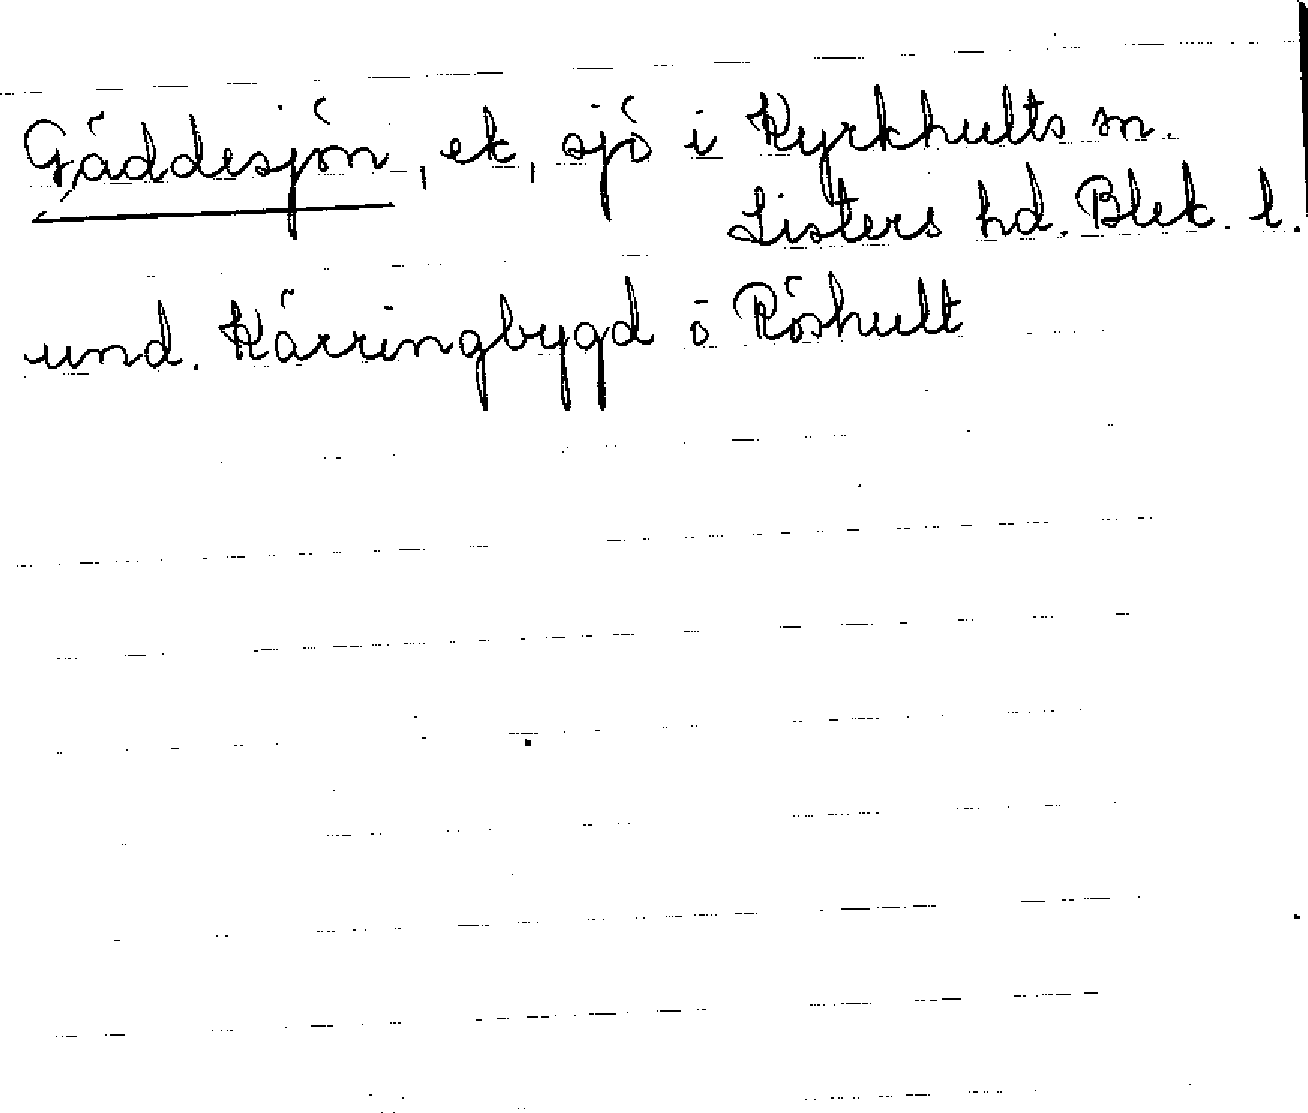 Gäddesjön, ek, sjö i Kyrkhults sn.
Listers hd. Blek. l.
und. Kärringbygd o Röshult